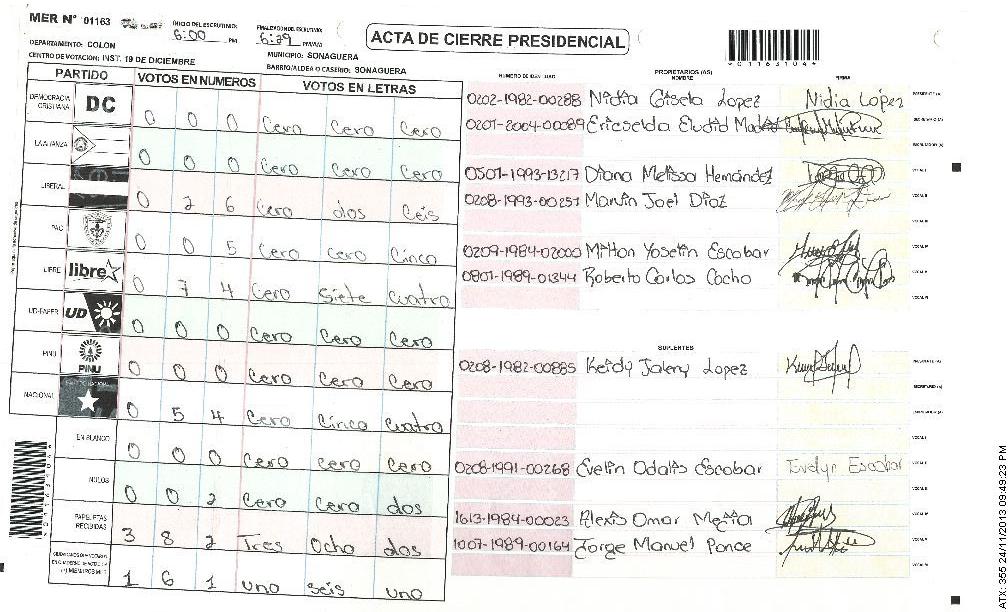 MER N° 01163
INICIO DEL ESCRUTINIO: 6:00 PM
FINALIZACION DE ESCRUTINIO: 6:29 PM/AM
ACTA DE CIERRE PRESIDENCIAL
DEPARTAMENTO: COLON
MUNICIPIO: SONAGUERA
CENTRO DE VOTACION: INST. 19 DE DICIEMBRE
BARRIO/ALDEA O CASERIO: SONAGUERA
PARTIDO VOTOS EN NUMEROS VOTOS EN LETRAS
DEMOCRACIA CRISTIANA DC 0 0 0 Cero Cero Cero
LA ALIANZA 0 0 0 Cero Cero Cero
LIBERAL 0 2 6 Cero dos Ceis
PAC 0 0 5 Cero Cero Cinco
LIBRE libre 0 7 4 Cero Siete Cuatro
UD-FAPER UD 0 0 0 Cero Cero Cero
PINU PINU 0 0 0 Cero Cero Cero
NACIONAL 0 5 4 Cero Cinco Cuatro
EN BLANCO 0 0 0 Cero Cero Cero
NULOS 0 0 2 Cero Cero dos
PAPELETAS RECIBIDAS 3 8 2 Tres Ocho dos
1 6 1 uno seis uno
*01163104*
NUMERO DE IDENTIDAD PROPIETARIOS (AS) NOMBRE FIRMA
0202-1982-00288 Nidia Gisela Lopez Nidia López PRESIDENTE (A)
0201-2004-00089 Ericselda Eludid Madrid SECRETARIO (A)
ESCRUTADOR (A)
0501-1993-13217 Diana Melissa Hernández VOCAL I
0208-1993-00257 Marvin Joel Diaz VOCAL II
VOCAL III
0209-1984-02000 Milton Yoselin Escobar VOCAL IV
0801-1989-01344 Roberto Carlos Cocho VOCAL V
VOCAL VI
SUPLENTES
0208-1982-00885 Keidy Jaleny Lopez PRESIDENTE (A)
SECRETARIO (A)
ESCRUTADOR (A)
VOCAL I
0208-1991-00268 Evelin Odalis Escobar Evelyn Escobar VOCAL II
VOCAL III
1613-1984-00023 Alexis Omar Mejia VOCAL IV
1007-1989-00164 Jorge Manuel Ponce VOCAL V
VOCAL VI
ATX: 355 24/11/2013 09:49:23 PM